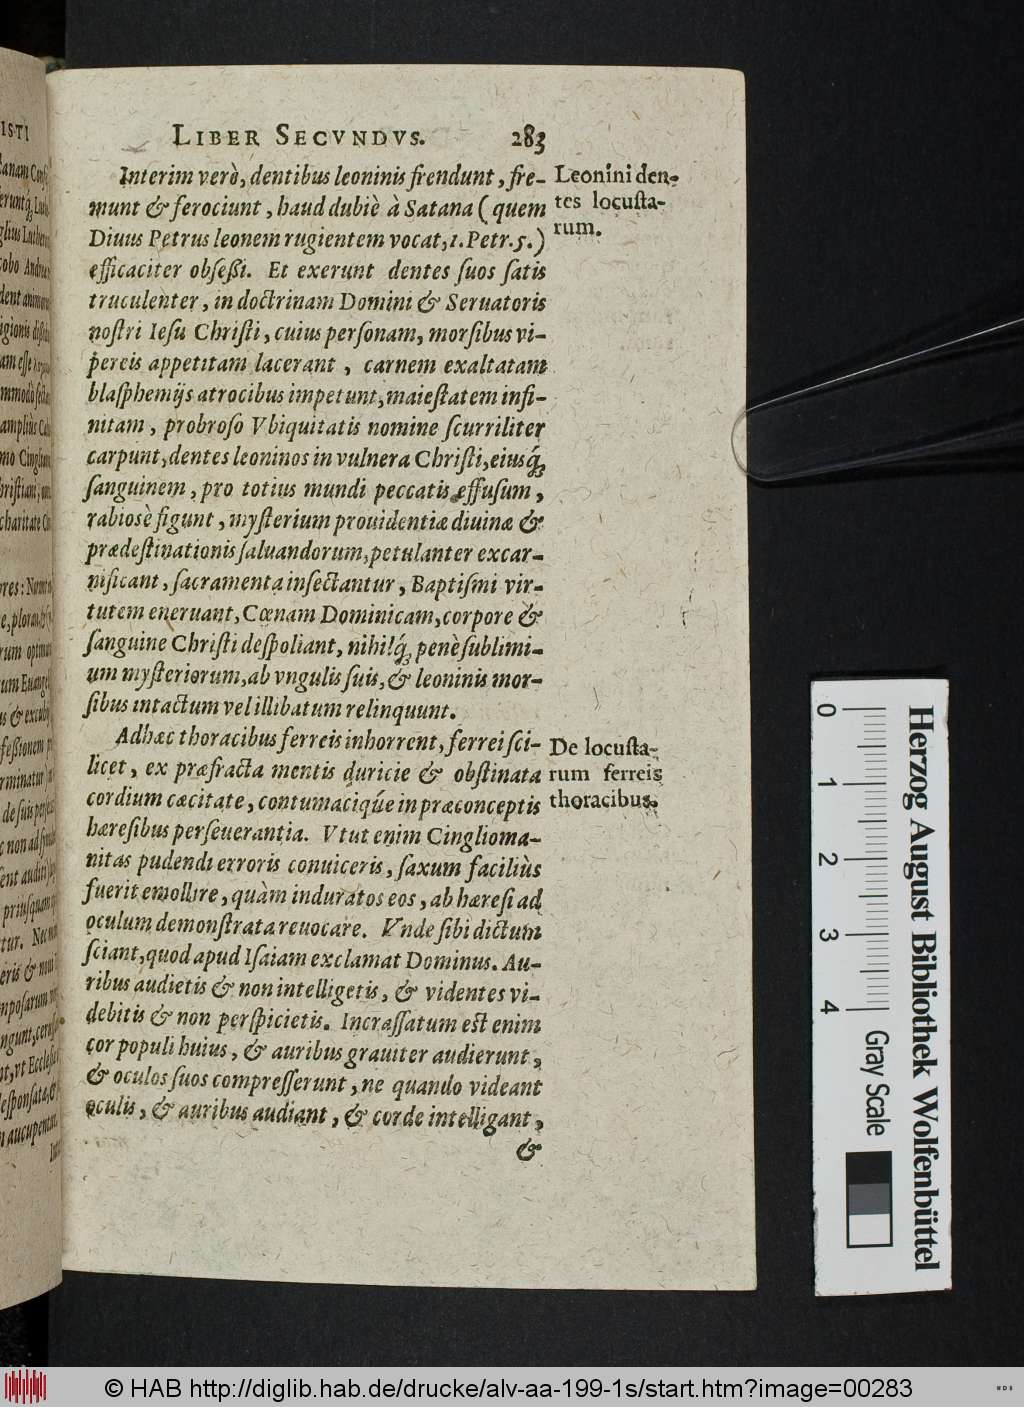 LIBER SECVNDVS. 283
Interim verò, dentibus leoninis frendunt, fre-
munt & ferociunt, haud dubiè à Satana (quem
Diuus Petrus leonem rugientem vocat, 1. Petr. 5.)
efficaciter obseßi. Et exerunt dentes suos satis
truculenter, in doctrinam Domini & Seruatoris
nostri Iesu Christi, cuius personam, morsibus vi-
pereis appetitam lacerant, carnem exaltatam
blasphemijs atrocibus impetunt, maiestatem infi-
nitam, probroso Vbiquitatis nomine scurriliter
carpunt, dentes leoninos in vulnera Christi, eiusq́;
sanguinem, pro totius mundi peccatis effusum,
rabiosè figunt, mysterium prouidentiæ diuinæ &
prædestinationis saluandorum, petulanter excar-
nificant, sacramenta insectantur, Baptismi vir-
tutem eneruant, Cœnam Dominicam, corpore &
sanguine Christi despoliant, nihilq́; penè sublimi-
um mysteriorum, ab vngulis suis, & leoninis mor-
sibus intactum vel illibatum relinquunt.
Adhæc thoracibus ferreis inhorrent, ferrei sci-
licet, ex præfracta mentis duricie & obstinata
cordium cæcitate, contumaciq́ue in præconceptis
hæresibus perseuerantia. Vtut enim Cinglioma-
nitas pudendi erroris conuiceris, saxum faciliùs
fuerit emollire, quàm induratos eos, ab hæresi ad
oculum demonstrata reuocare. Vnde sibi dictum
sciant, quod apud Isaiam exclamat Dominus. Au-
ribus audietis & non intelligetis, & videntes vi-
debitis & non perspicietis. Incrassatum est enim
cor populi huius, & auribus grauiter audierunt,
& oculos suos compresserunt, ne quando videant
oculis, & auribus audiant, & corde intelligant,
&
Leonini den-
tes locusta-
rum.
De locusta-
rum ferreis
thoracibus.
ISTI
0 1 2 3 4
Herzog August Bibliothek Wolfenbüttel
Gray Scale
© HAB http://diglib.hab.de/drucke/alv-aa-199-1s/start.htm?image=00283